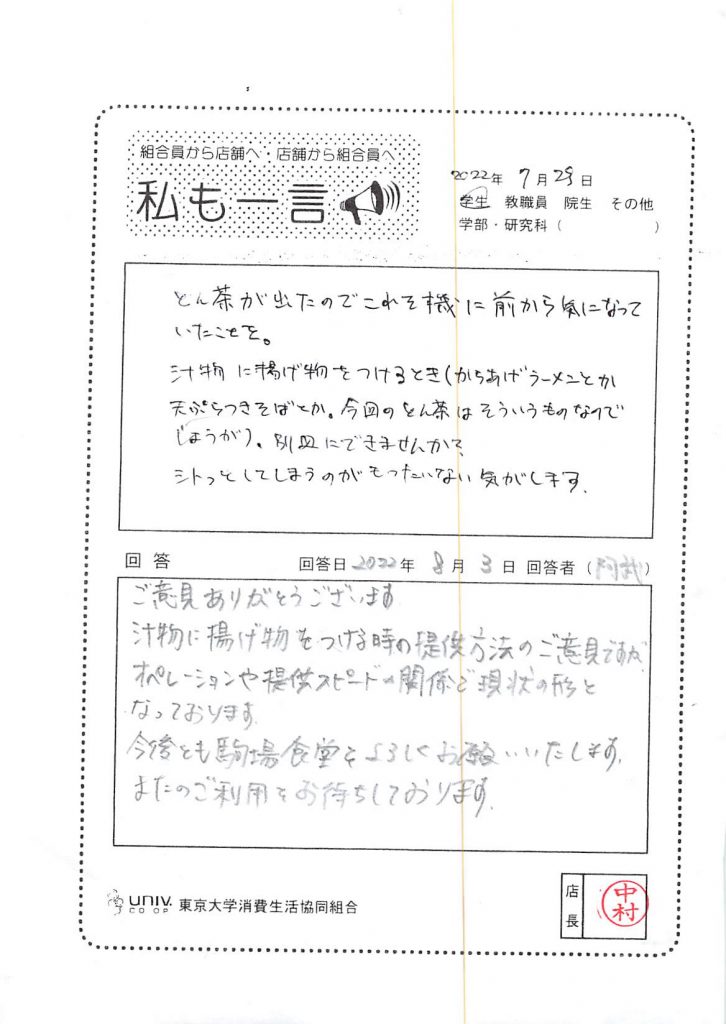 組合員から店舗へ・店舗から組合員へ
私も一言
2022年 7月29日
学生 教職員 院生 その他
学部・研究科（ ）
とん茶が出たのでこれを機に前から気になって
いたことを。
汁物に揚げ物をつけるとき(からあげラーメンとか
天ぷらつきそばとか。今回のとん茶はそういうものなので
しょうが)。別皿にできませんか?
シトっとしてしまうのがもったいない気がします.
回答 回答日2022年 8月 3日 回答者（阿武）
ご意見ありがとうございます
汁物に揚げ物をつける時の提供方法のご意見ですが、
オペレーションや提供スピードの関係で現状の形と
なっております.
今後とも駒場食堂をよろしくお願いいたします.
またのご利用をお待ちしております.
UNIV.
CO-OP 東京大学消費生活協同組合
店長
中村